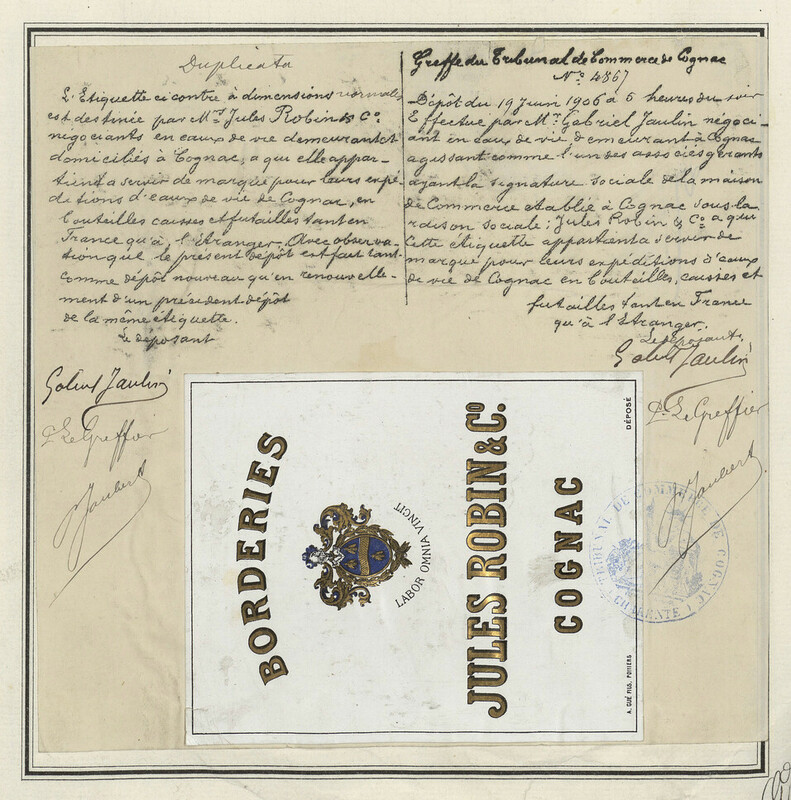 Duplicata
L'Etiquette ci contre à dimensions normales
est destinée par Mrs Jules Robin & Co.
négociants en eaux de vie demeurant et
domiciliés à Cognac, a qui elle appar-
tient a servir de marque pour leurs expé-
ditions d'eaux de vie de Cognac, en
bouteilles caisses et futailles tant en
France qu'à l'étranger. Avec observa-
tion que le présent dépôt est fait tant
comme dépôt nouveau qu'en renouvelle-
ment d'un précédent dépôt
de la même étiquette.
Le déposant
Gabriel Jaulin
P. Le Greffier
Jaubert
Greffe du Tribunal de Commerce de Cognac
No. 4867
Dépôt du 19 Juin 1906 à 5 heures du soir
Effectué par Mr. Gabriel Jaulin négoci-
ant en eaux de vie demeurant à Cognac
agissant comme l'un des associés gerants
ayant la signature sociale de la maison
de Commerce etablie à Cognac sous la
raison sociale: Jules Robin & Co a qui
cette étiquette appartient a servir de
marque pour leurs expéditions d'eaux
de vie de Cognac en bouteilles, caisses et
futailles tant en France
qu'à l'Etranger.
Le déposant,
Gabriel Jaulin
P. Le Greffier
Jaubert
BORDERIES
LABOR OMNIA VINCIT
JULES ROBIN & CO.
COGNAC
DÉPOSÉ
A. GUÉ FILS, POITIERS
TRIBUNAL DE COMMERCE DE COGNAC
(CHARENTE)